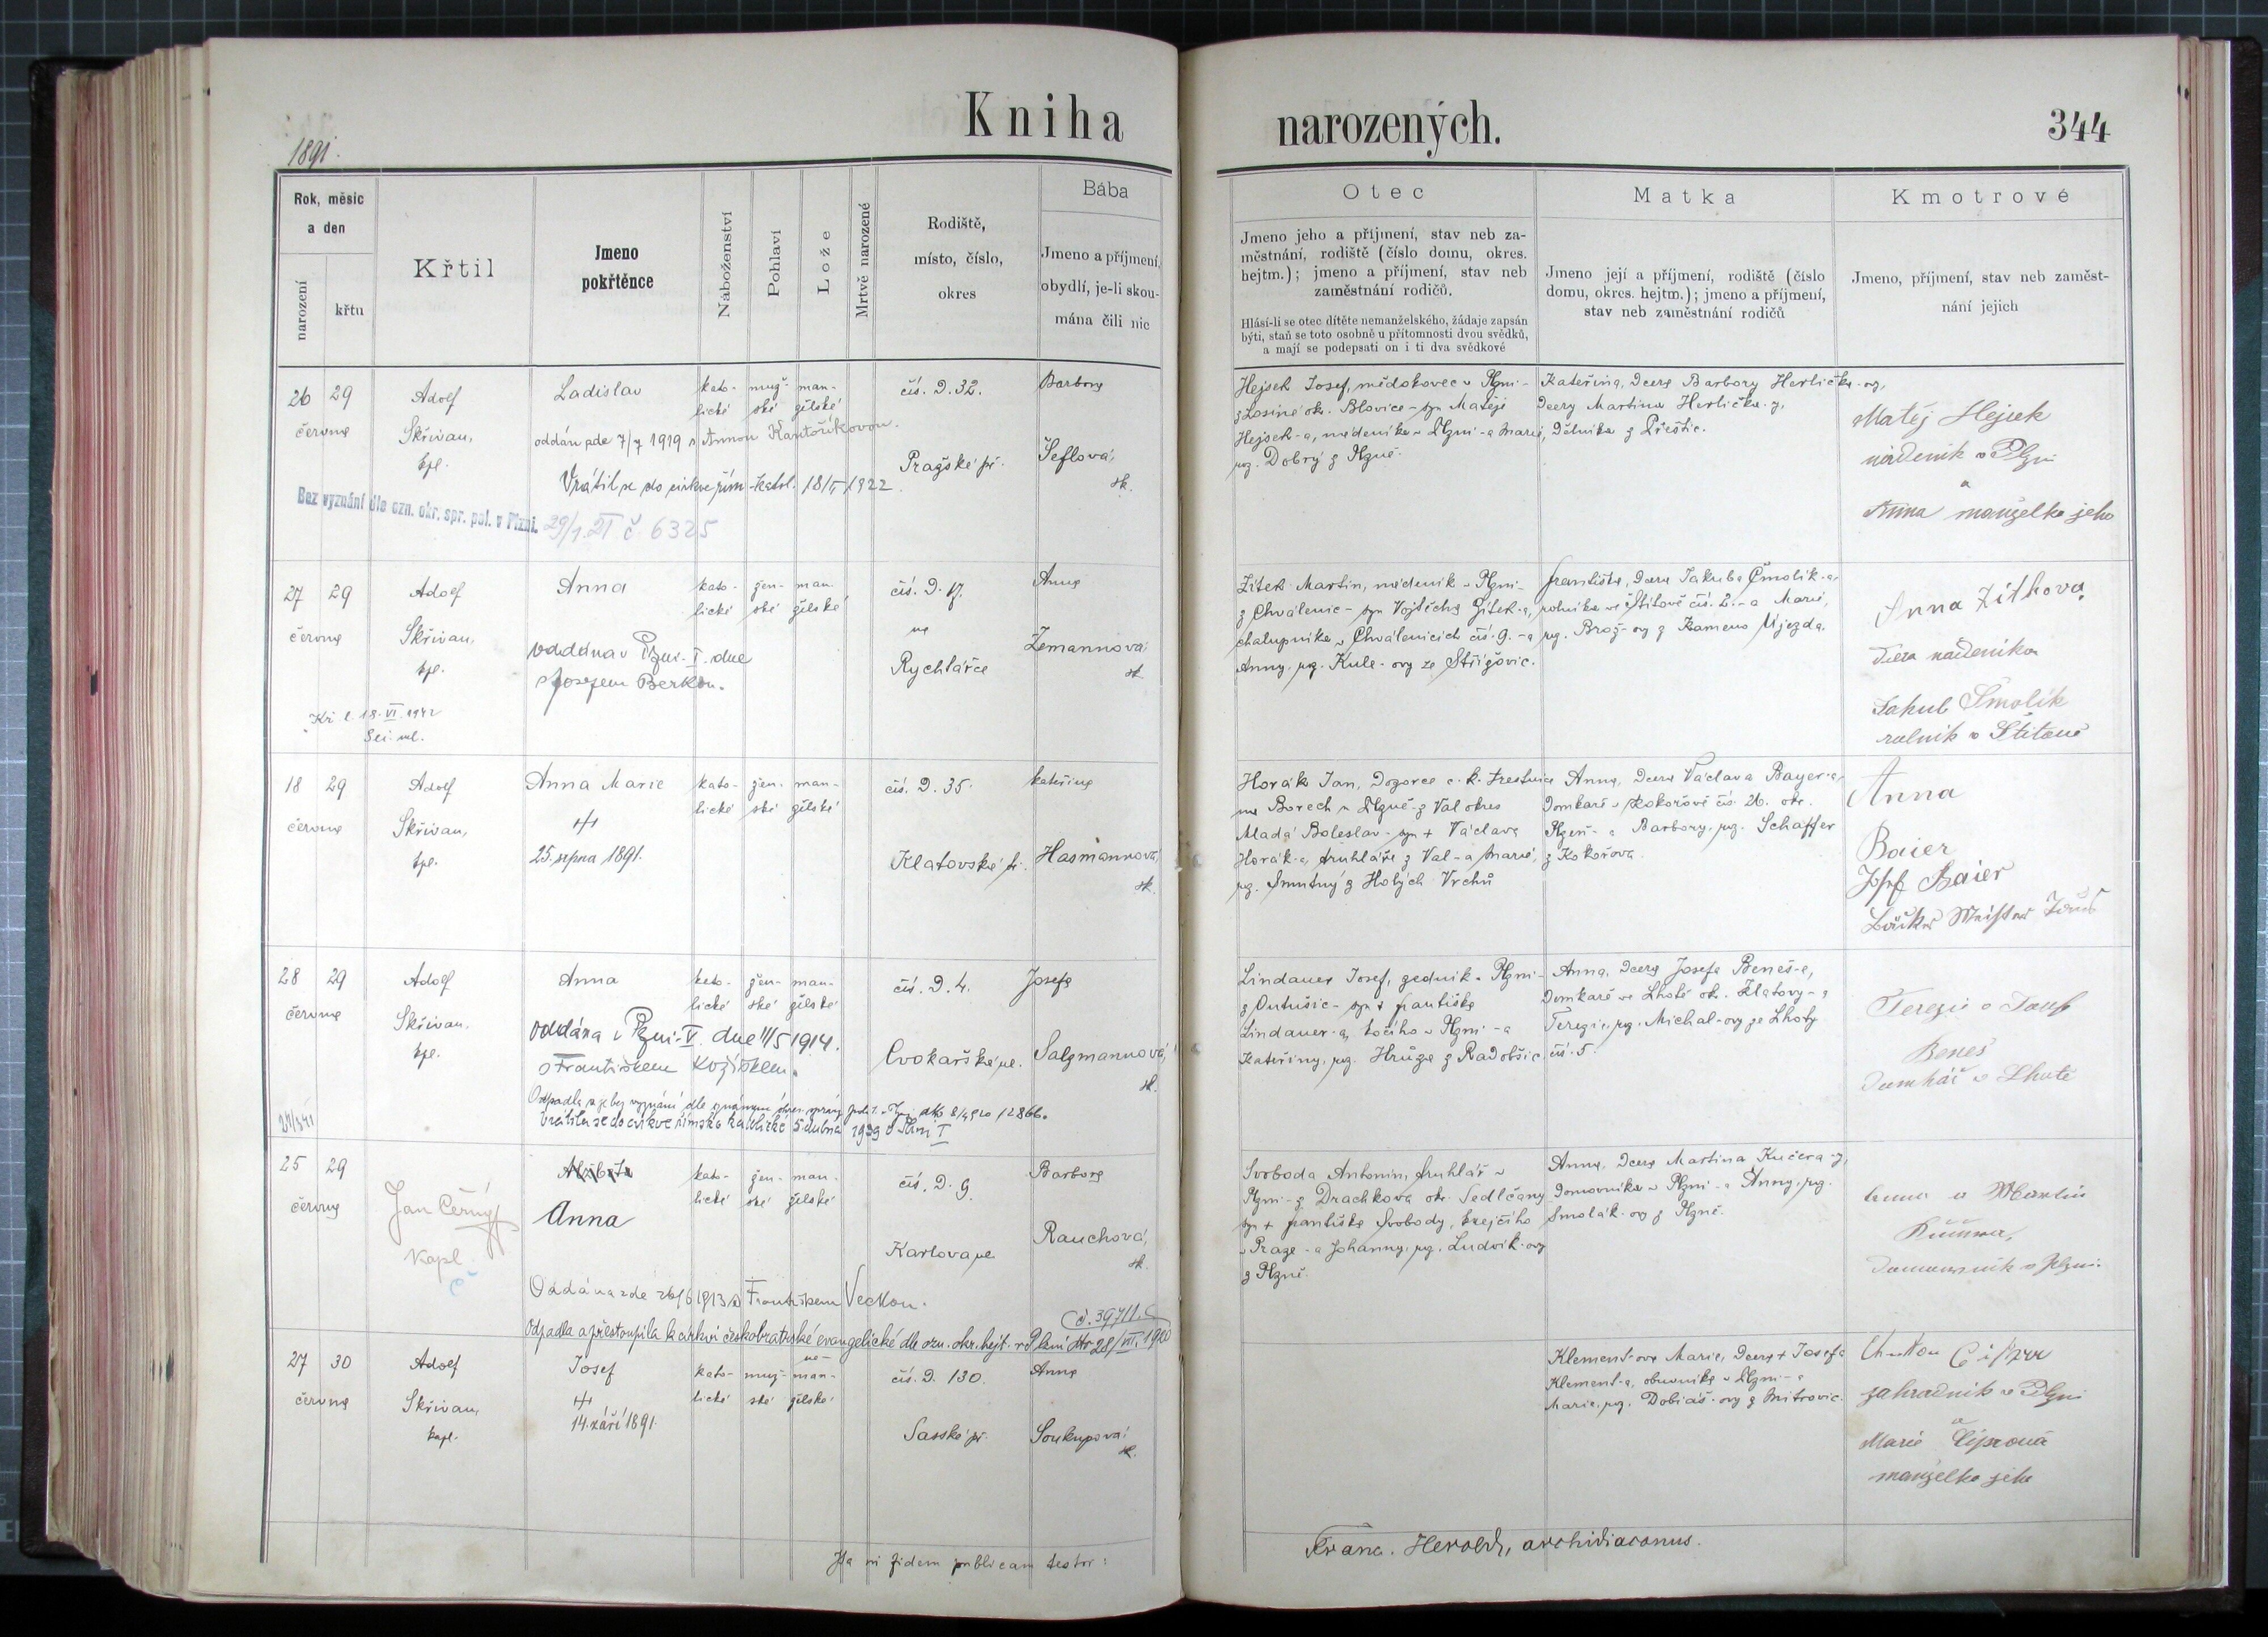 Kniha narozených.
344
1891.
Rok, měsíc a den
narození
křtu
Křtil
Jmeno pokřtěnce
Náboženství
Pohlaví
Lože
Mrtvě narozené
Rodiště, místo, číslo, okres
Bába
Jmeno a příjmení, obydlí, je-li skoumána čili nic
Otec
Jmeno jeho a příjmení, stav neb za-
městnání, rodiště (číslo domu, okres.
hejtm.); jmeno a příjmení, stav neb
zaměstnání rodičů.
Hlásí-li se otec dítěte nemanželského, žádaje zapsán
býti, staň se toto osobně u přítomnosti dvou svědků,
a mají se podepsati on i ti dva svědkové
Matka
Jmeno její a příjmení, rodiště (číslo
domu, okres. hejtm.); jmeno a příjmení,
stav neb zaměstnání rodičů
Kmotrové
Jmeno, příjmení, stav neb zaměst-
nání jejich
26 29
června
Adolf
Skřivan,
kpl.
Ladislav
oddán zde 7/7 1919 s Annou Kantoříkovou.
Vrátil se do církve řím-katol. 18/I 1922.
Bez vyznání dle ozn. okr. spr. pol. v Plzni.
29/1. 21 č 6325
kato-
lické
muž-
ské
man-
želské
čís. D. 32.
Pražské př.
Barbora
Šeflová,
sk.
Hejsek Josef, mědokovec v Plzni-
z Losiné okr. Blovice - syn Matěje
Hejsek-a, nádeníka v Plzni - a Marie,
roz. Dobrý z Plzně.
Kateřina, dcera Barbory Herlička-ovy,
dcery Martina Herlička-y,
dělníka z Přeštic.
Matěj Hejsek
nádeník v Plzni
a
Anna manželka jeho
27 29
června
Adolf
Skřivan,
kpl.
Anna
oddána v Plzni-I. dne
s Josefem Berkou.
Kř. l. 18. VI. 1942
kato-
lické
žen-
ské
man-
želské
čís. D. 17.
na
Rychtářce
Anna
Zemannová,
sk.
Žítek Martin, nádeník v Plzni-
z Chválenic - syn Vojtěcha Žítek-a,
chalupníka v Chválenicích čís. 9. - a
Anny, roz. Kule-ovy ze Střížovic.
Františka, dcera Jakuba Čmolík-a,
rolníka ve Štítově čís. 2. - a Marie,
roz. Brož-ovy z Kamena Újezda.
Anna Žítková
dcera nádeníka
Jakub Šmolík
rolník v Štítově
18 29
června
Adolf
Skřivan,
kpl.
Anna Marie
25. srpna 1891.
kato-
lické
žen-
ské
man-
želské
čís. D. 35.
Klatovská tř.
Kateřina
Hasmannová,
sk.
Horák Jan, dozorce c. k. trestnice
na Borech u Plzně - z Val okres
Mladá Boleslav - syn + Václava
Horák-a, truhláře z Val - a Marie,
roz. Smutný z Holých Vrchů
Anna, dcera Václava Bayer-a,
domkaře v Kokořově čís. 26. okr.
Plzeň - a Barbory, roz. Schaffer
z Kokořova.
Anna
Baier
Josef Baier
28 29
června
Adolf
Skřivan,
kpl.
Anna
oddána v Plzni-V. dne 11/5 1914.
s Františkem Kozíškem.
vrátila se do církve římsko katolické 5. dubna 1939 v Plzni I
kato-
lické
žen-
ské
man-
želské
čís. D. 4.
Cvokařská ul.
Josefa
Salzmannová,
sk.
Lindauer Josef, zedník v Plzni-
z Vntušic - syn + Františka
Lindauer-a, kočího v Plzni - a
Kateřiny, roz. Hrůza z Radobšic.
Anna, dcera Josefa Beneš-e,
domkaře ve Lhotě okr. Klatovy - a
Terezie, roz. Michal-ovy ze Lhoty
čís. 5.
Terezie a Josef
Beneš
domkář v Lhotě
25 29
června
Jan Černý
kapl
Anna
Oddána zde 26/6 1913 s Františkem Veckou.
č. 39711.
Odpadla a přestoupila k církvi českobratrské evangelické dle ozn. okr. hejt. v Plzni dto 28/VII. 1920
kato-
lické
žen-
ské
man-
želské
čís. D. 9.
Karlova ul.
Barbora
Rauchová,
sk.
Svoboda Antonín, truhlář v
Plzni - z Drachkova okr. Sedlčany
syn + Františka Svobody, krejčího
v Praze - a Johanny, roz. Ludvík-ovy
z Plzně.
Anna, dcera Martina Kučera-y,
domovníka v Plzni - a Anny, roz.
Smolák-ovy z Plzně.
Anna a Martin
Kučera,
domovník v Plzni.
27 30
června
Adolf
Skřivan,
kapl.
Josef
14. září 1891.
kato-
lické
muž-
ské
ne-
man-
želské
čís. D. 130.
Saské př.
Anna
Soukupová,
sk.
Klement-ova Marie, dcera + Josefa
Klement-a, obuvníka v Plzni - a
Marie, roz. Dobiáš-ovy z Mitrovic.
zahradník v Plzni
a
Marie Ciprová
manželka jeho
Ita in fidem publicam testor:
Franc. Herold, archidiaconus.